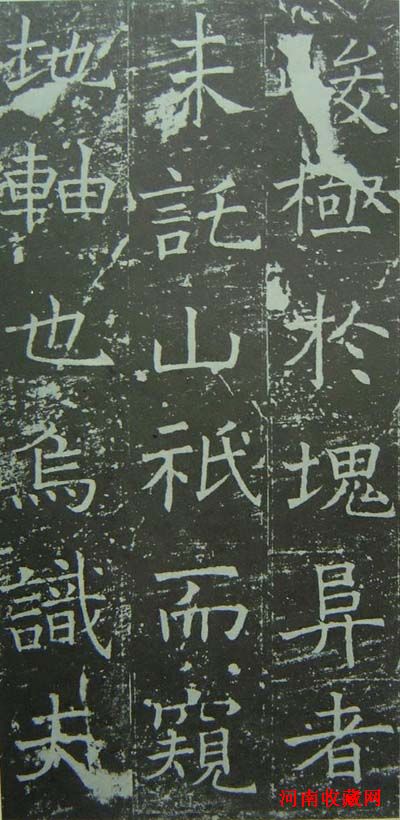 峻極於塊阜者
未託山祇而窺
地軸也烏識夫
河南收藏网